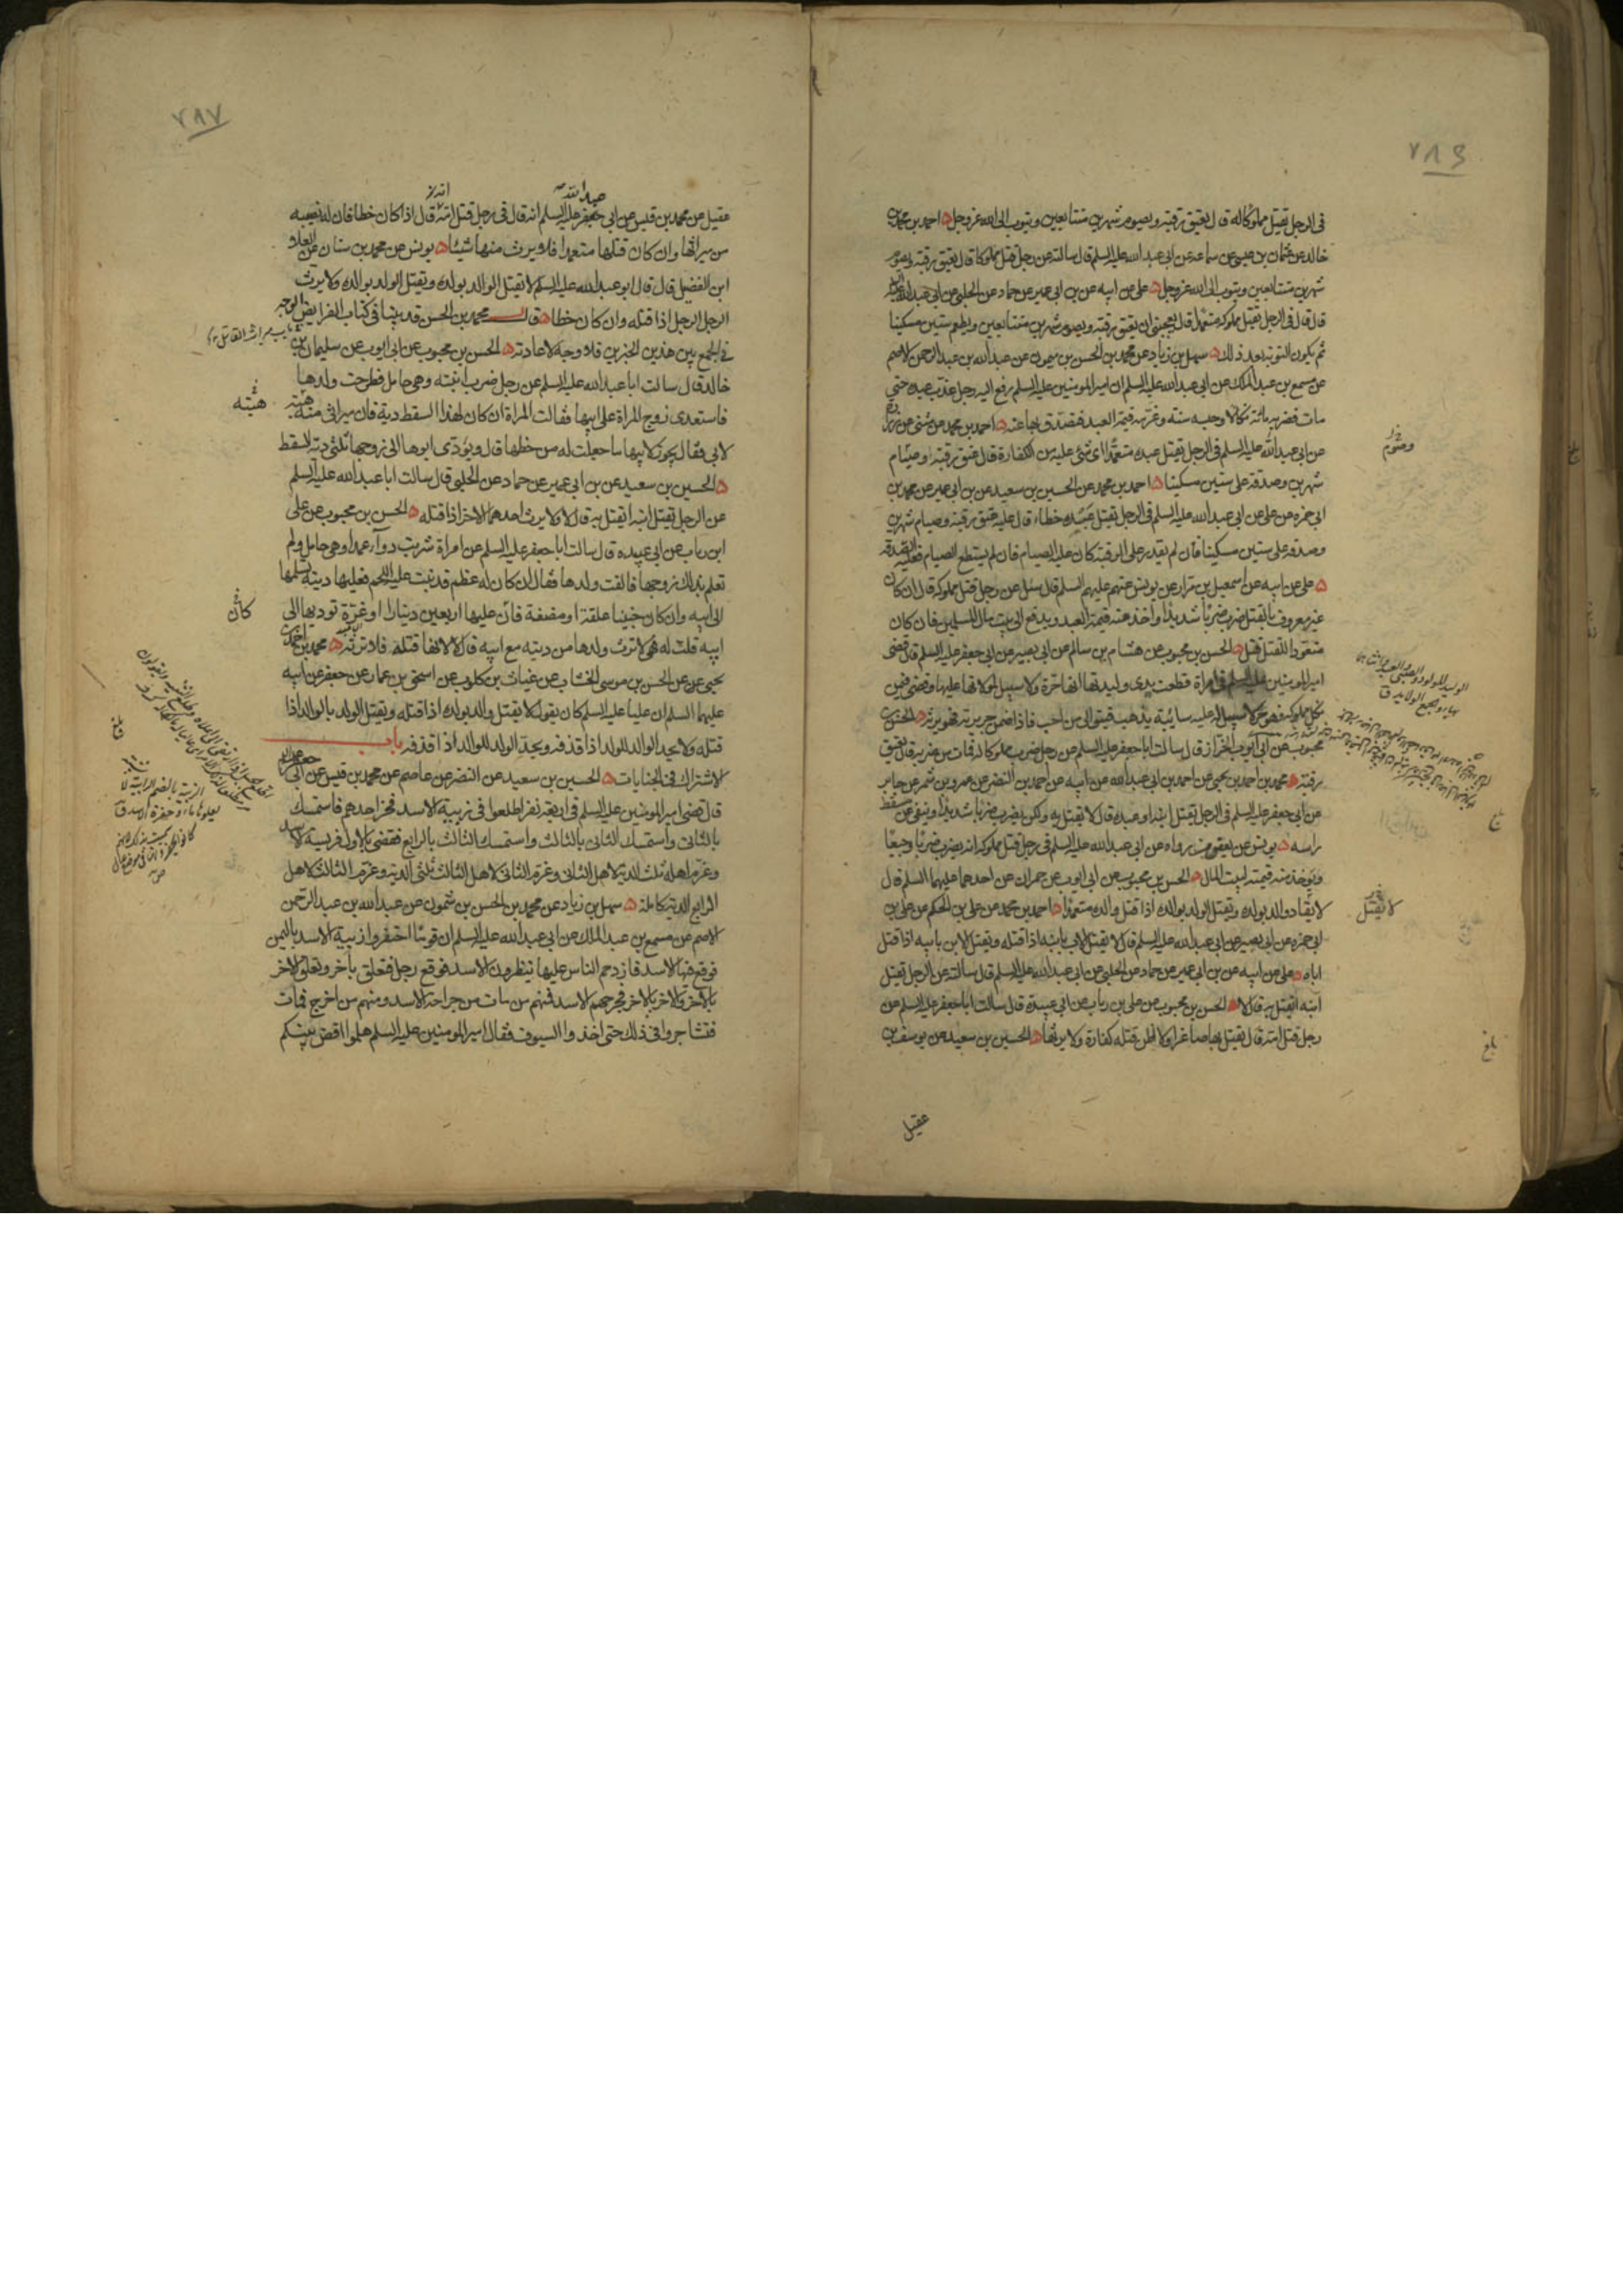 ٧٨٦
في الرجل يقتل مملوكا له قال يعتق رقبة ويصوم شهرين متتابعين ويتوب الى الله عز وجل ٥ احمد بن محمد بن
خالد عن عثمان بن عيسى عن سماعه عن ابي عبد الله عليه السلم قال سالته عن رجل قتل مملوكا قال يعتق رقبة ويصوم
شهرين متتابعين ويتوب الى الله عز وجل ٥ علي عن ابيه عن بن ابي عمير عن حماد عن الحلبي عن ابي عبد الله
قال قال في الرجل يقتل مملوكه متعمدا قال يعجبني ان يعتق رقبة ويصوم شهرين متتابعين ويطعم ستين مسكينا
ثم يكون التوبة بعد ذلك ٥ سهل بن زياد عن محمد بن الحسن بن شمون عن عبد الله بن عبد الرحمن الاصم
عن مسمع بن عبد الملك عن ابي عبد الله عليه السلم ان امير المومنين عليه السلم رفع اليه رجل عذب عبده حتى
مات فضربه مائة نكالا وحبسه سنه وغرمه قيمة العبد فتصدق بها عنه ٥ احمد بن محمد عن مثنى عن زرارة
عن ابي عبد الله عليه السلم في الرجل يقتل عبده متعمدا اي شئ عليه من الكفارة قال عتق رقبة وصيام
وصوم
شهرين وصدقة على ستين مسكينا ٥ احمد بن محمد عن الحسين بن سعيد عن بن ابي عمير عن محمد بن
ابي حمزه عن علي عن ابي عبد الله عليه السلم في الرجل يقتل عبده خطاء قال عليه عتق رقبة وصيام شهرين
وصدقة على ستين مسكينا فان لم يقدر على الرقبة كان عليه الصيام فان لم يستطع الصيام فعليه الصدقة
٥ علي عن ابيه عن اسمعيل بن مرار عن يونس عنهم عليهم السلم قال سئل عن رجل قتل مملوكه قال ان كان
غير معروف بالقتل ضرب ضربا شديدا واخذ منه قيمة العبد ويدفع الى بيت مال المسلمين فان كان
متعودا للقتل قتل ٥ الحسن بن محبوب عن هشام بن سالم عن ابي بصير عن ابي جعفر عليه السلم قال قضى
امير المومنين عليه السلم في امراة قطعت يدي وليدتها انها حرة ولا سبيل لمولاتها عليها وقضى فيمن
نكل مملوكه فهو حر لا سبيل له عليه سائبة يذهب فيتولى من احب فاذا ضمن جريرته فهو يرثه ٥ الحسن بن
محبوب عن ابي ايوب الخراز قال سالت ابا جعفر عليه السلم عن رجل ضرب مملوكا له فمات من ضربه قال يعتق
رقبة ٥ محمد بن احمد بن يحيى عن احمد بن ابي عبد الله عن ابيه عن احمد بن النضر عن عمرو بن شمر عن جابر
عن ابي جعفر عليه السلم في الرجل يقتل ابنه او عبده قال لا يقتل به ولكن يضرب ضربا شديدا وينفى عن مسقط
راسه ٥ يونس عن بعض من رواه عن ابي عبد الله عليه السلم في رجل قتل مملوكه انه يضرب ضربا وجيعا
ويؤخذ منه قيمته لبيت المال ٥ الحسن بن محبوب عن ابي ايوب عن حمران عن احدهما عليهما السلم قال
لا يقاد والد بولده ويقتل الولد بوالده اذا قتل والده متعمدا ٥ احمد بن محمد عن علي بن الحكم عن علي بن
لا يقتل
ابي حمزه عن ابي بصير عن ابي عبد الله عليه السلم قال لا يقتل الاب بابنه اذا قتله ويقتل الابن بابيه اذا قتل
اباه ٥ علي عن ابيه عن بن ابي عمير عن حماد عن الحلبي عن ابي عبد الله عليه السلم قال سالته عن الرجل يقتل
ابنه ايقتل به قال لا ٥ الحسن بن محبوب عن علي بن رياب عن ابي عبيدة قال سالت ابا جعفر عليه السلم عن
رجل قتل امه قال يقتل بها صاغرا ولا اظن قتله كفارة ولا يرثها ٥ الحسين بن سعيد عن يوسف بن
عقيل
٧٨٧
عقيل عن محمد بن قيس عن ابي جعفر عليه السلم انه قال في رجل قتل امه قال اذا كان خطا فان له نصيبه
عبد الله
من ميراثها وان كان قتلها متعمدا فلا يرث منها شيئا ٥ يونس عن محمد بن سنان عن العلا
ابن الفضيل قال قال ابو عبد الله عليه السلم لا يقتل الوالد بولده ويقتل الولد بوالده ولا يرث
الرجل الرجل اذا قتله وان كان خطا ٥ قال محمد بن الحسن قد بينا في كتاب الفرايض الوجه
باب ميراث القاتل
في الجمع بين هذين الخبرين فلا وجه لاعادته ٥ الحسن بن محبوب عن ابي ايوب عن سليمان بن
خالد قال سالت ابا عبد الله عليه السلم عن رجل ضرب ابنته وهي حامل فطرحت ولدها
فاستعدى زوج المراة على ابيها فقالت المراة ان كان لهذا السقط دية فان ميراثي منه هبته
هبته
لابي فقال يجوز لابيها ما جعلت له من حظها قال ويؤدى ابوها الى زوجها ثلثي دية السقط
٥ الحسين بن سعيد عن بن ابي عمير عن حماد عن الحلبي قال سالت ابا عبد الله عليه السلم
عن الرجل يقتل ابنه ايقتل به قال لا ولا يرث احدهما الاخر اذا قتله ٥ الحسن بن محبوب عن علي
ابن رياب عن ابي عبيده قال سالت ابا جعفر عليه السلم عن امراة شربت دواء عمدا وهي حامل ولم
تعلم بذلك زوجها فالقت ولدها فقال ان كان له عظم قد نبت عليه اللحم فعليها دية تسلمها
الى ابيه وان كان جنينا علقة او مضغة فان عليها اربعين دينارا او غرة توديها الى
كان
ابيه قلت له فهي لا ترث ولدها من ديته مع ابيه قال لا لانها قتلته فلا ترثه ٥ محمد بن احمد بن
يحيى عن الحسن بن موسى الخشاب عن غياث بن كلوب عن اسحق بن عمار عن جعفر عن ابيه
عليهما السلم ان عليا عليه السلم كان يقول لا يقتل والد بولده اذا قتله ويقتل الولد بالوالد اذا
قتله ولا يحد الوالد للولد اذا قذفه ويحد الولد للوالد اذا قذفه باب
الاشتراك في الجنايات ٥ الحسين بن سعيد عن النضر عن عاصم عن محمد بن قيس عن ابي جعفر
قال قضى امير المومنين عليه السلم في اربعة نفر اطلعوا في زبية الاسد فخر احدهم فاستمسك
بالثاني واستمسك الثاني بالثالث واستمسك الثالث بالرابع فقضى بالاول فريسة الاسد
وغرم اهله ثلث الدية لاهل الثاني وغرم الثاني لاهل الثالث ثلثي الدية وغرم الثالث لاهل
الرابع الدية كاملة ٥ سهل بن زياد عن محمد بن الحسن بن شمون عن عبد الله بن عبد الرحمن
الاصم عن مسمع بن عبد الملك عن ابي عبد الله عليه السلم ان قوما احتفروا زبية الاسد باليمن
فوقع فيها الاسد فازدحم الناس عليها ينظرون الاسد فوقع رجل فتعلق باخر وتعلق الاخر
بالاخر والاخر بالاخر فجرحهم الاسد فمنهم من مات من جراحة الاسد ومنهم من اخرج فمات
فتشاجروا في ذلك حتى اخذوا السيوف فقال امير المومنين عليه السلم هلموا اقض بينكم